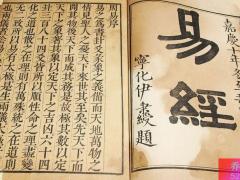 嘉慶十年
易經
寧化伊秉綬題
周易序
易之為書卦爻彖象之義備而天地萬物之
情見聖人之憂天下來世其至矣先天下而
開其物後天下而成其務是故極其數以定
天下之象著其象以定天下之吉凶六十四
卦三百八十四爻皆所以順性命之理盡變
化之道也散之在理則有萬殊統之在道則
無二致所以易有太極是生兩儀太極者道